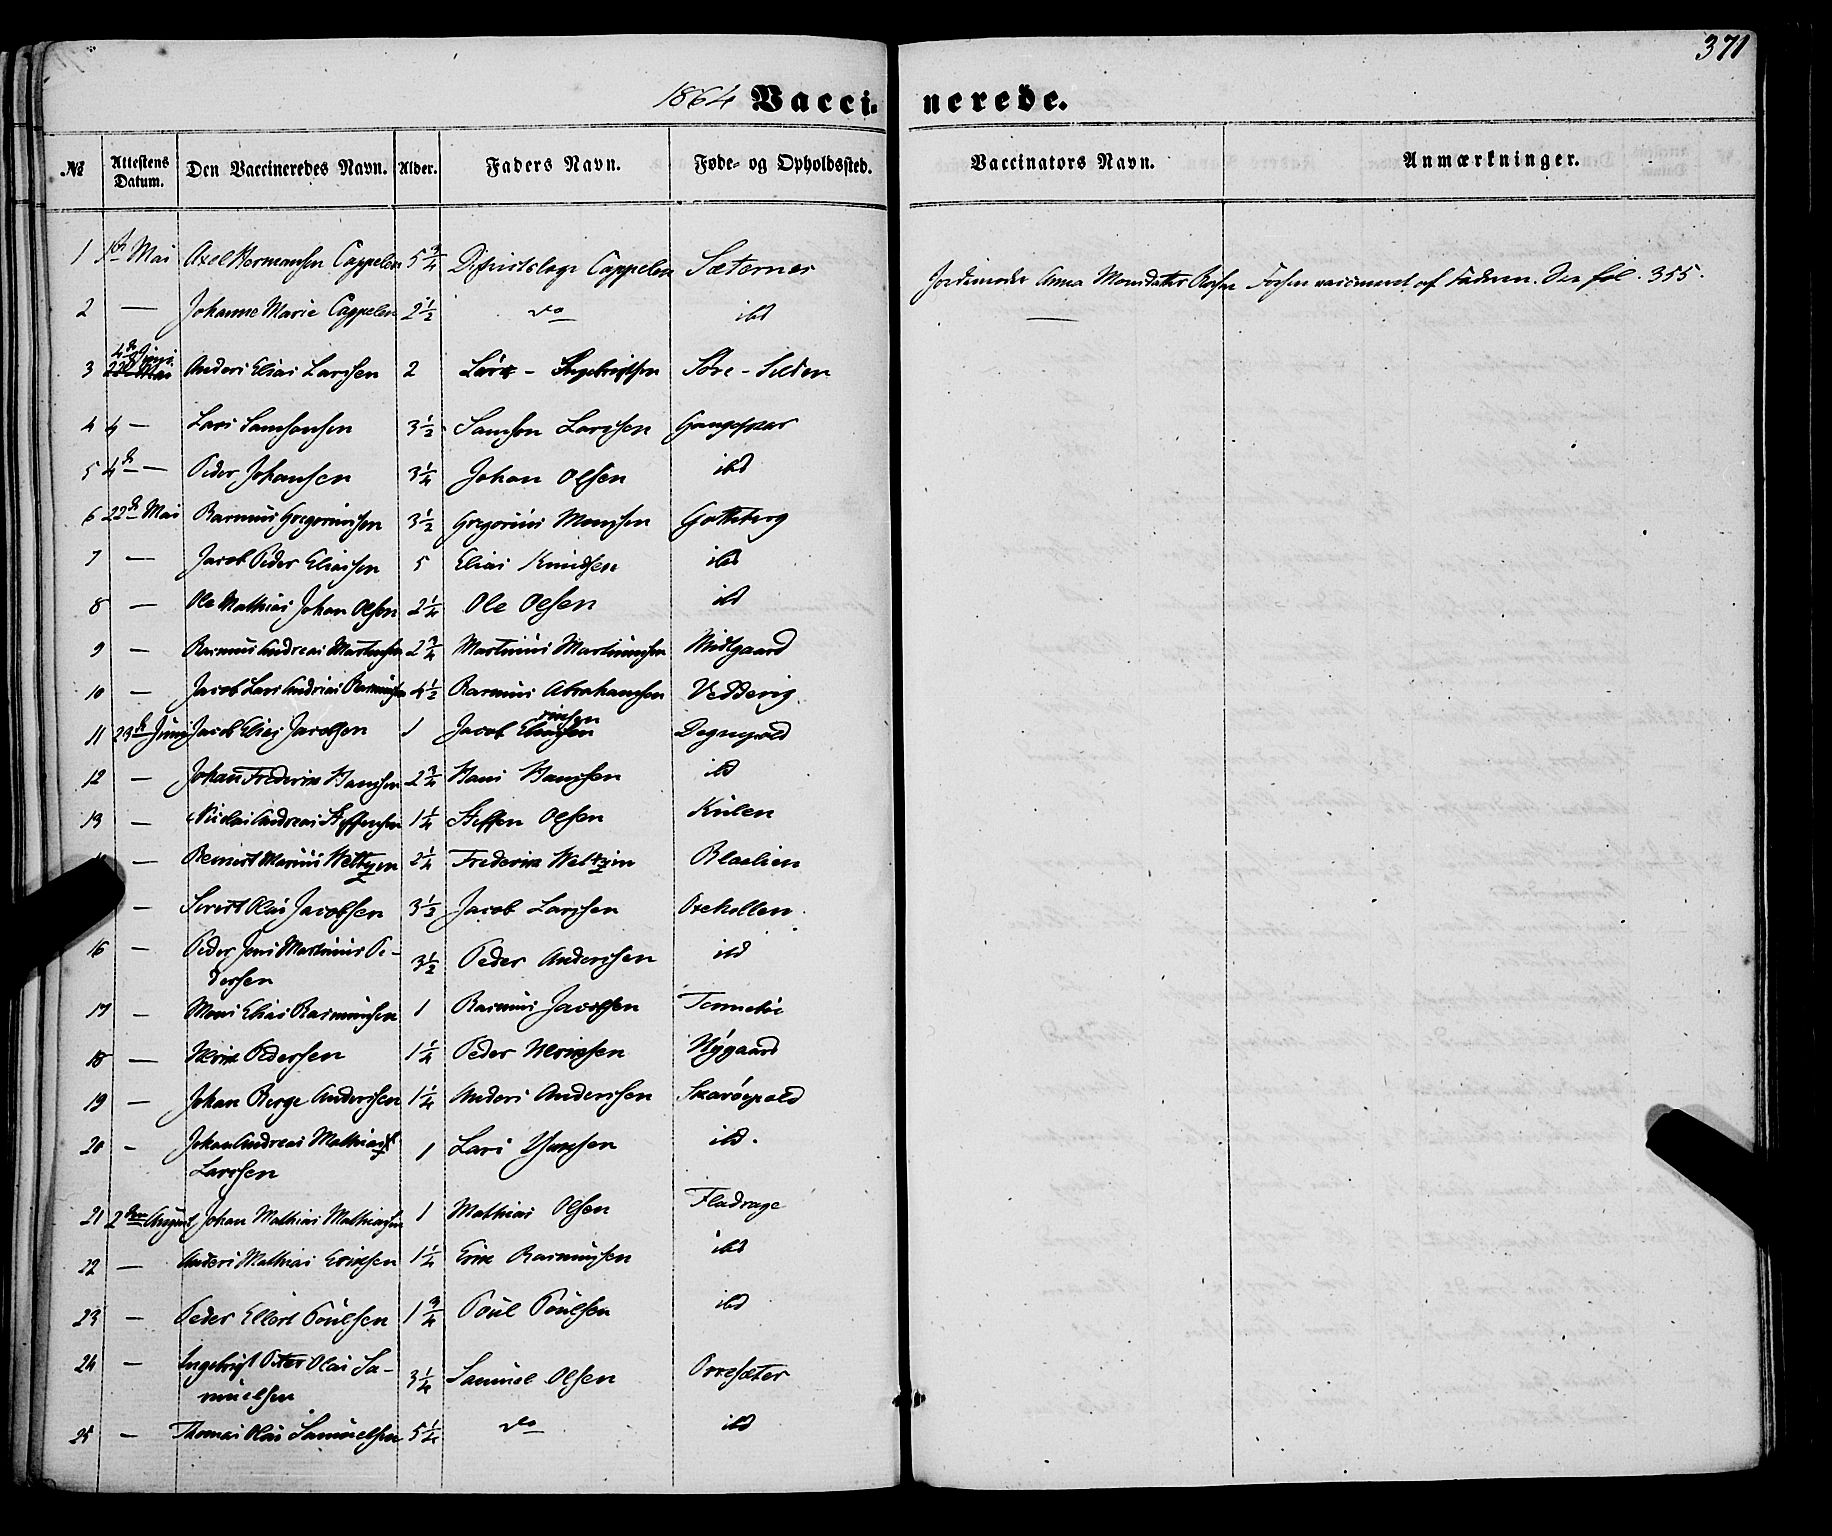 371
1864 Vaccinerede.
№ Attestens Datum. Den Vaccineredes Navn. Alder. Faders Navn. Føde- og Opholdssted. Vaccinators Navn. Anmærkninger.
1 1ste Mai Axel Hermansen Cappelen 5 3/4 Districtslæge Cappelen Sæternes Jordemoder Anna Monsdatter Forhen vaccineret af Faderen. See fol. 355.
2 — Johanne Marie Cappelen 2 1/2 do ibd —
3 4de Juni 22de Mai Anders Elias Larssen 2 Lars Ingebrigtsen Store-Silden
4 4 — Lars Samsonsen 3 1/2 Samson Larssen
5 4de — Peder Johansen 3 1/4 Johan Olsen ibd
6 22de Mai Rasmus Gregoriussen 3 1/2 Gregorius Monssen Gotteberg
7 — Jacob Peder Eliassen 5 Elias Knudsen ibd
8 — Ole Mathias Johan Olsen 2 1/4 Ole Olsen ibd
9 — Rasmus Andreas Martinsen 2 3/4 Martinus Martinussen Midtgaard
10 — Jacob Lars Andreas Rasmussen 4 1/2 Rasmus Abrahamsen Vedvig
11 23de Juni Jacob Elias Jacobsen 1 Jacob Degnepold
12 — Johan Frederik Hanssen 2 3/4 Hans Hanssen ibd
13 — Nicolai Andreas Steffensen 1 1/4 Steffen Olsen Kulen
— Reinert Marius Weltzin 2 1/4 Frederik Weltzin Blaalien
— Sivert Olai Jacobsen 3 1/2 Jacob Larssen Oxekollen
16 — Peder Jens Martinus Pe-
dersen 3 1/2 Peder Anderssen ibd
17 — Mons Elias Rasmussen 1 Rasmus Jacobsen
18 — Ulrik Pedersen 1 1/4 Peder Ulriksen Nygaard
19 — Johan Berge Anderssen 1 1/4 Anders Anderssen Skarøepold
20 — Johan Andreas Mathias
Larssen 1 Lars ibd.
21 2den August Johan Mathias Mathiassen 1 Mathias Olsen Fladrage
22 — Anders Mathias Eriksen 1 1/4 Erik Rasmussen ibd
23 — Peder Ellert Poulsen 1 3/4 Poul Poulsen ibd
24 — Ingebrigt Peter Olai Sa-
muelsen 3 1/4 Samuel Olsen Orresæter
25 — Thomas Olai Samuelsen 5 1/4 do ibd